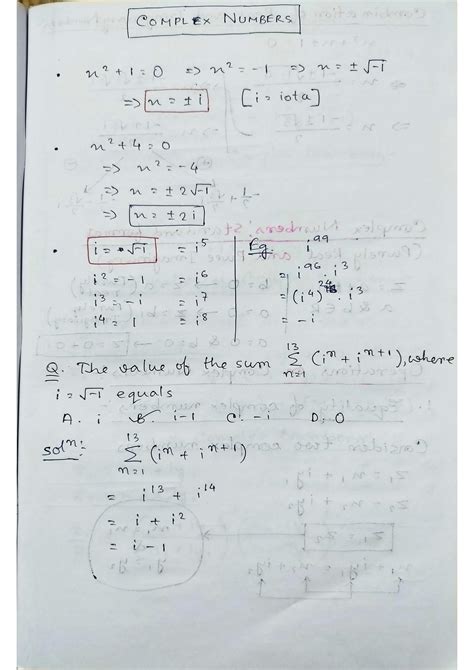 COMPLEX NUMBERS
• x² + 1 = 0 ⇒ x² = -1 ⇒ x = ± √-1
⇒ x = ± i [i = iota]
• x² + 4 = 0
⇒ x² = -4
⇒ x = ± 2√-1
⇒ x = ± 2i
• i = √-1 = i⁵
i² = -1 = i⁶
i³ = -i = i⁷
i⁴ = 1 = i⁸
Eg. i⁹⁹
= i⁹⁶ . i³
= (i⁴)²⁴ . i³
= -i
Q. The value of the sum 13 Σ n=1 (iⁿ + iⁿ⁺¹), where
i = √-1 equals
A. i B. i-1 C. -i D. 0
solⁿ: 13 Σ n=1 (iⁿ + iⁿ⁺¹)
= i¹³ + i¹⁴
= i + i²
= i - 1